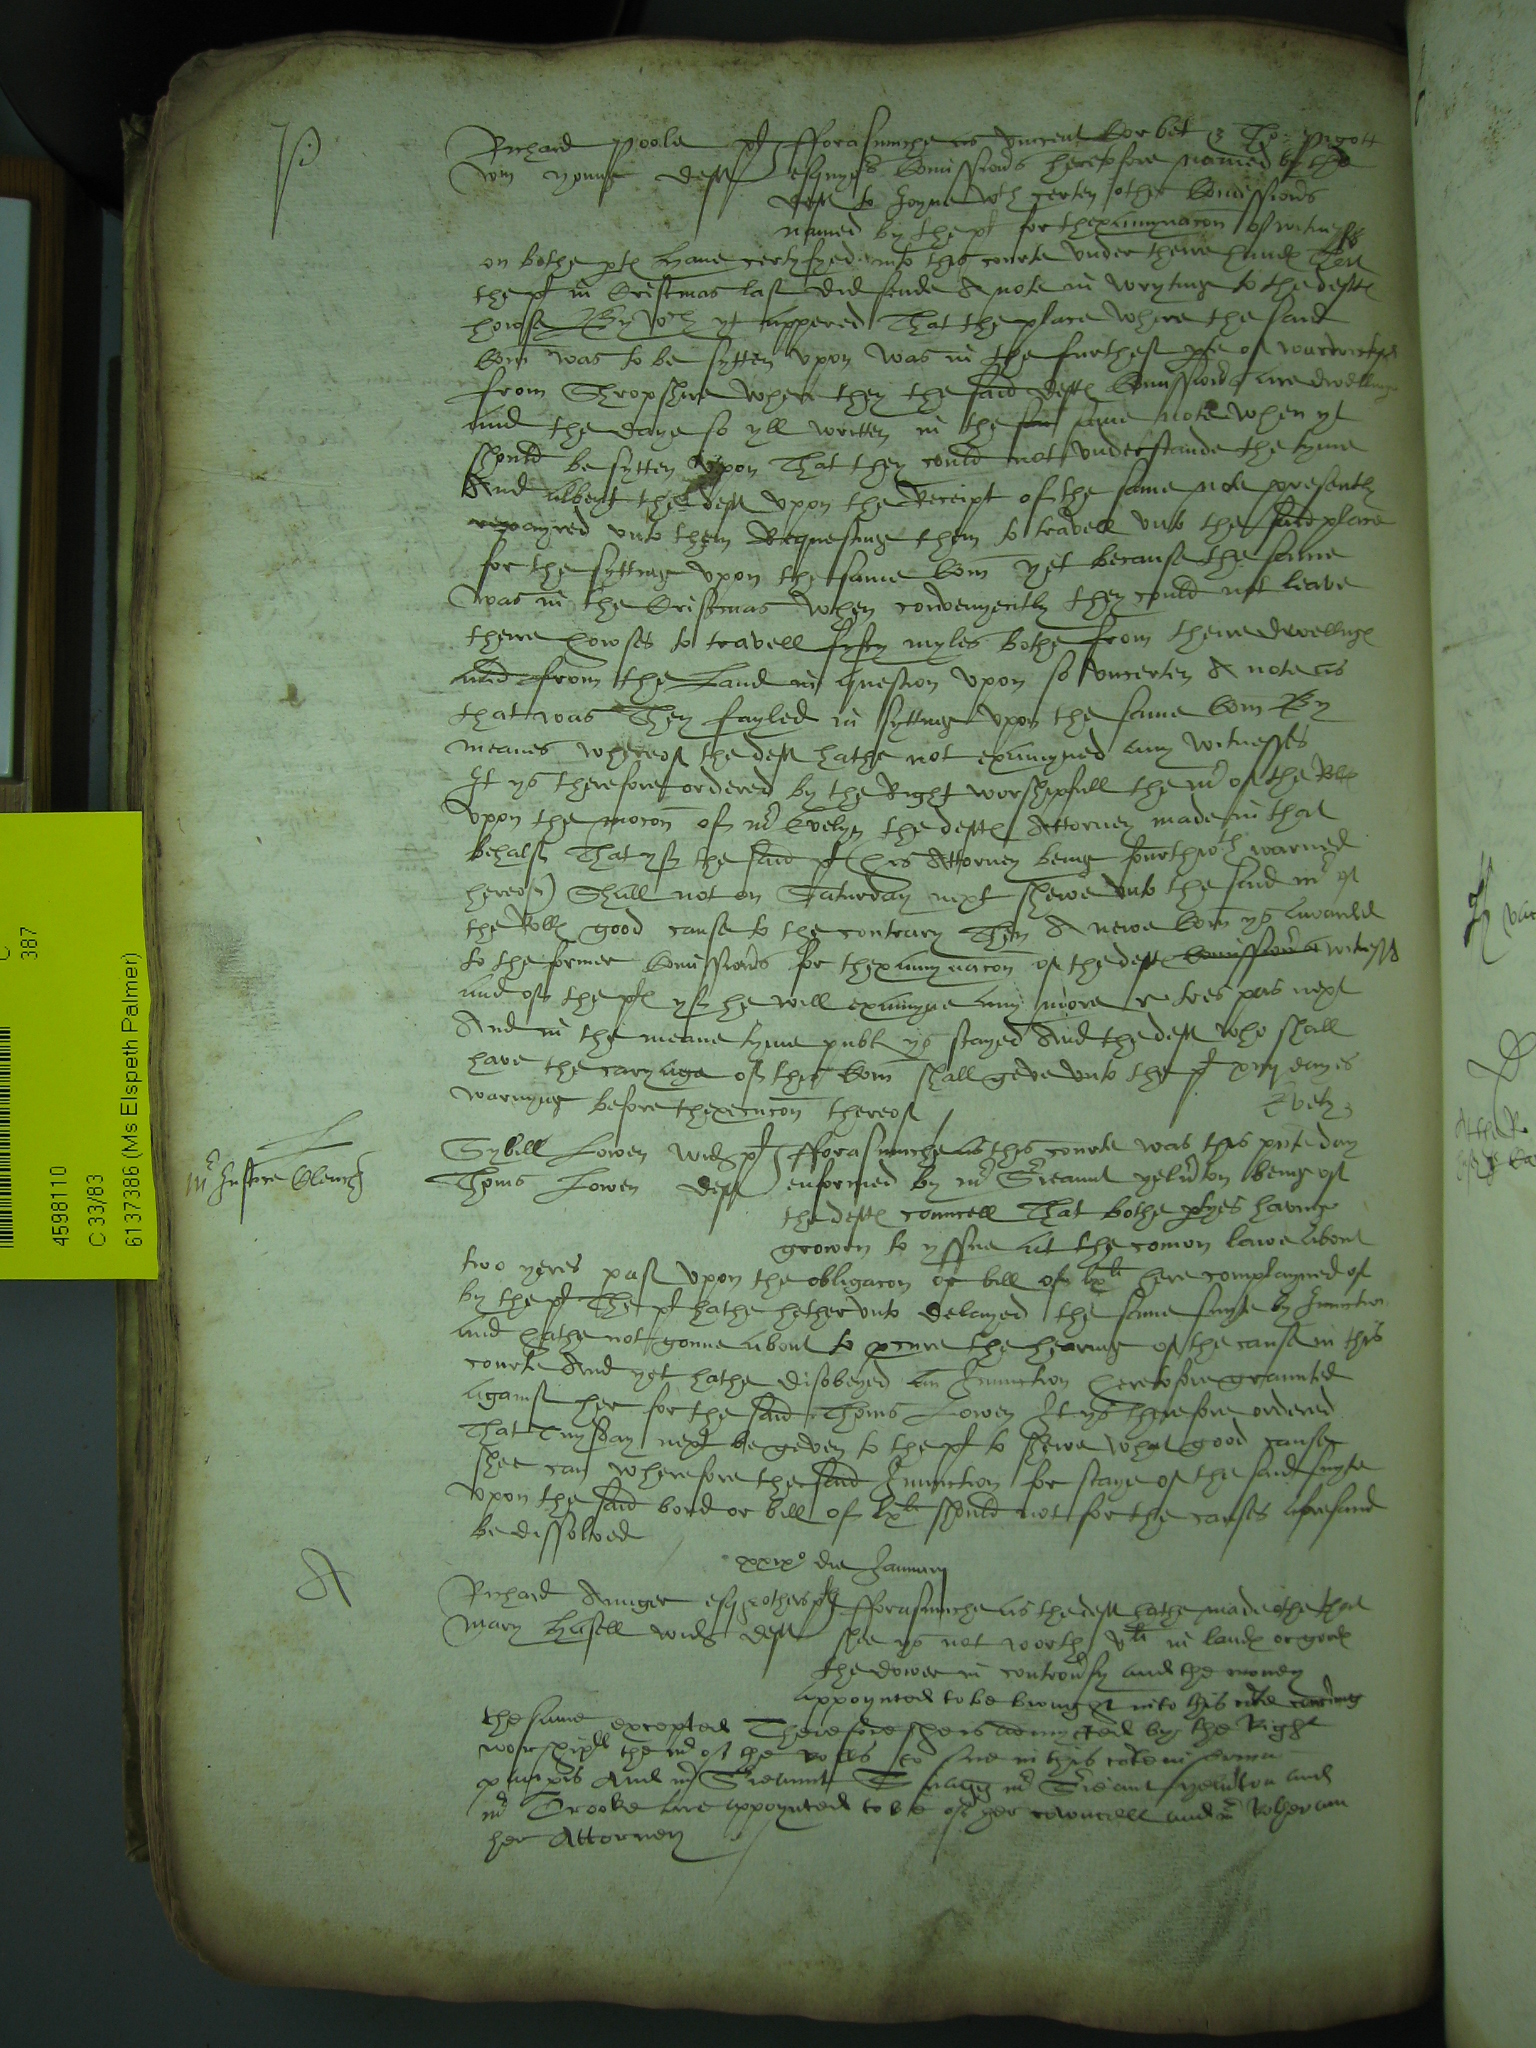 P
Richard Poole pl fforasmuche as Vincent Corbet & Tho: Pigott
Wm Yonge deft esquyers Comissioners heretofore named by the
deft to Joyne wth certen other Comissioners
named by the pl for thexaminacon of witnesses
on bothe ptes have certyfyed into this courte under theire handes That
the pl in Cristmas last did sende A note in wryting to the deftes
howse By wch yt appered That the place where the said
Com was to be sytten upon was in the furthest pte of
from Shropshire where they the said deftes Comissioners are dwelling
and the daye so yll written in the same note when yt
should be sytten upon That they could not understande the tyme
And albeyt the deft upon the Receipt of the same note presently
repayred unto them Requesting them to travell unto the said place
for the sytting upon the same Com yet because the same
was in the Cristmas when convenyently they could not leave
theire howses to travell fyfty myles bothe from theire dwellinges
and from the Land in question upon so uncerten A note as
that was They fayled in sytting upon the same Com By
meanes whereof the deft hathe not examyned any witnesses
It ys therefore ordered by the Right worshipfull the Mr of the Rolles
upon the mocon of Mr Evelyn the deftes Attorney made in that
behalf That yf the said pl (his Attorney being fourthwth warned
hereof) Shall not on Saturday next shewe unto the said Mr of
the Rolles good cause to the contrary Then A newe Com ys awarded
to the former Comissioners for thexaminacon of the deftes Comissioners witnesses
and of the ples yf he will examyne any more r tres pas next
And in the meane tyme publ ys stayed And the deft who shall
have the caryage of this Com shall geve unto the pl xiiij dayes
warnyng before thexecucon thereof
L
Mr Justice Clench
Sybell Lowen wid pl fforasmuche as this courte was this pnte day
Thoms Lowen deft enformed by Mr Sreaunt Yelverton being of
the deftes councell That bothe ptyes having
growen to yssue at the comon lawe about
two yeres past upon the obligacon or bill of lxli here complayned of
by the pl The pl hathe hetherunto delayed the same suyte by Iniunction
and hathe not gonne about to pcure the hearing of the cause in this
courte And yet hathe disobeyed an Iniunction heretofore graunted
against her for the said Thoms Lowen It ys therefore ordered
That Tuysday next be geven to the pl to shewe what good cause
shee can wherefore the said Iniunction for staye of the said suyte
upon the said bond or bill of lxli should not for the causes aforesaid
be dissolved
xxixo die Januarij
A
Richard Aunger esq & others pl fforasmuche as the deft hathe made othe that
Mary Hasell wid deft she ys not worth vli in landes or goodes
the dower in controversy and the money
appoynted to be brought into this courte
the same excepted Therefore she is admytted by the Right
worshipll the Mr of the Rolls to sue in this courte in forma
paupis And Mr Sreiaunt Snagg Mr Sreiant Yelverton and
Mr Crooke are appoynted to be of her councell and Mr Rotheram
her Attorney
4598110
C 33/83
6137386 (Ms Elspeth Palmer)
C
387